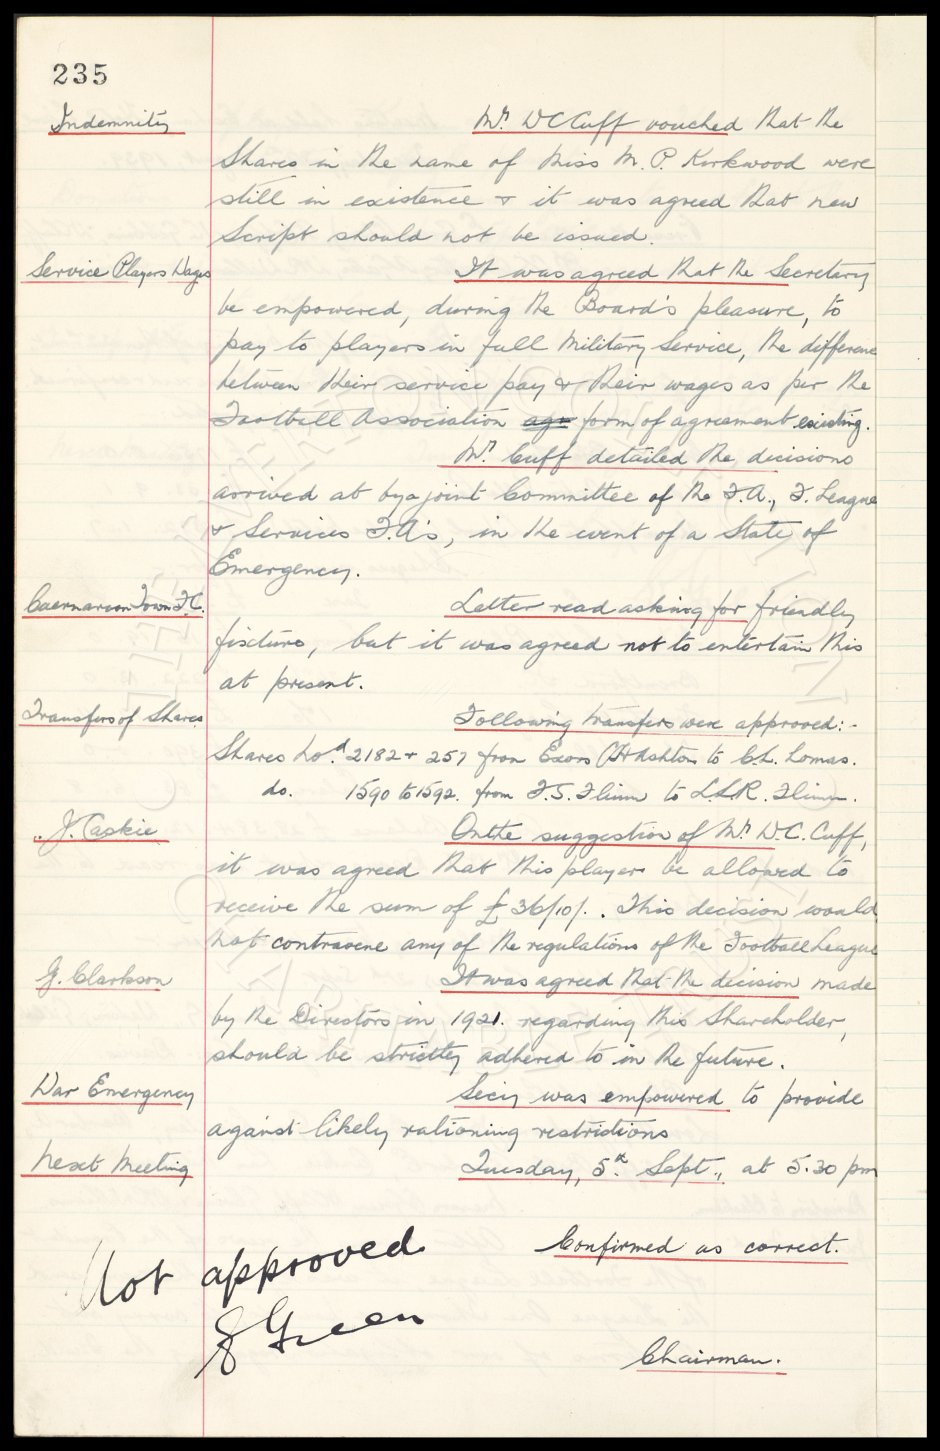 235
Indemnity Mr. W C Cuff vouched that the
Shares in the name of Miss M. P. Kirkwood were
still in existence & it was agreed that new
Script should not be issued.
Service Players Wages It was agreed that the Secretary
be empowered, during the Board's pleasure, to
pay to players in full Military Service, the difference
between their service pay & their wages as per the
Football Association agr form of agreement existing.
Mr. Cuff detailed the decisions
arrived at by a joint Committee of the F.A., F. League
& Services F.A's, in the event of a State of
Emergency.
Caernarvon Town F.C. Letter read asking for friendly
fixture, but it was agreed not to entertain this
at present.
Transfers of Shares Following transfers were approved:-
Shares No.s 2182 & 257 from Exors Ashton to C.L. Lomas.
do. 1590 to 1592. from F.S. Flinn to L.L.R. Flinn.
J. Caskie On the suggestion of Mr. W.C. Cuff,
it was agreed that this player be allowed to
receive the sum of £36/10/-. This decision would
not contravene any of the regulations of the Football League
G. Clarkson It was agreed that the decision made
by the Directors in 1921. regarding this Shareholder,
should be strictly adhered to in the future.
War Emergency Secy was empowered to provide
against likely rationing restrictions
Next Meeting Tuesday, 5th Sept., at 5.30 pm
Confirmed as correct.
Not approved
Green
Chairman.